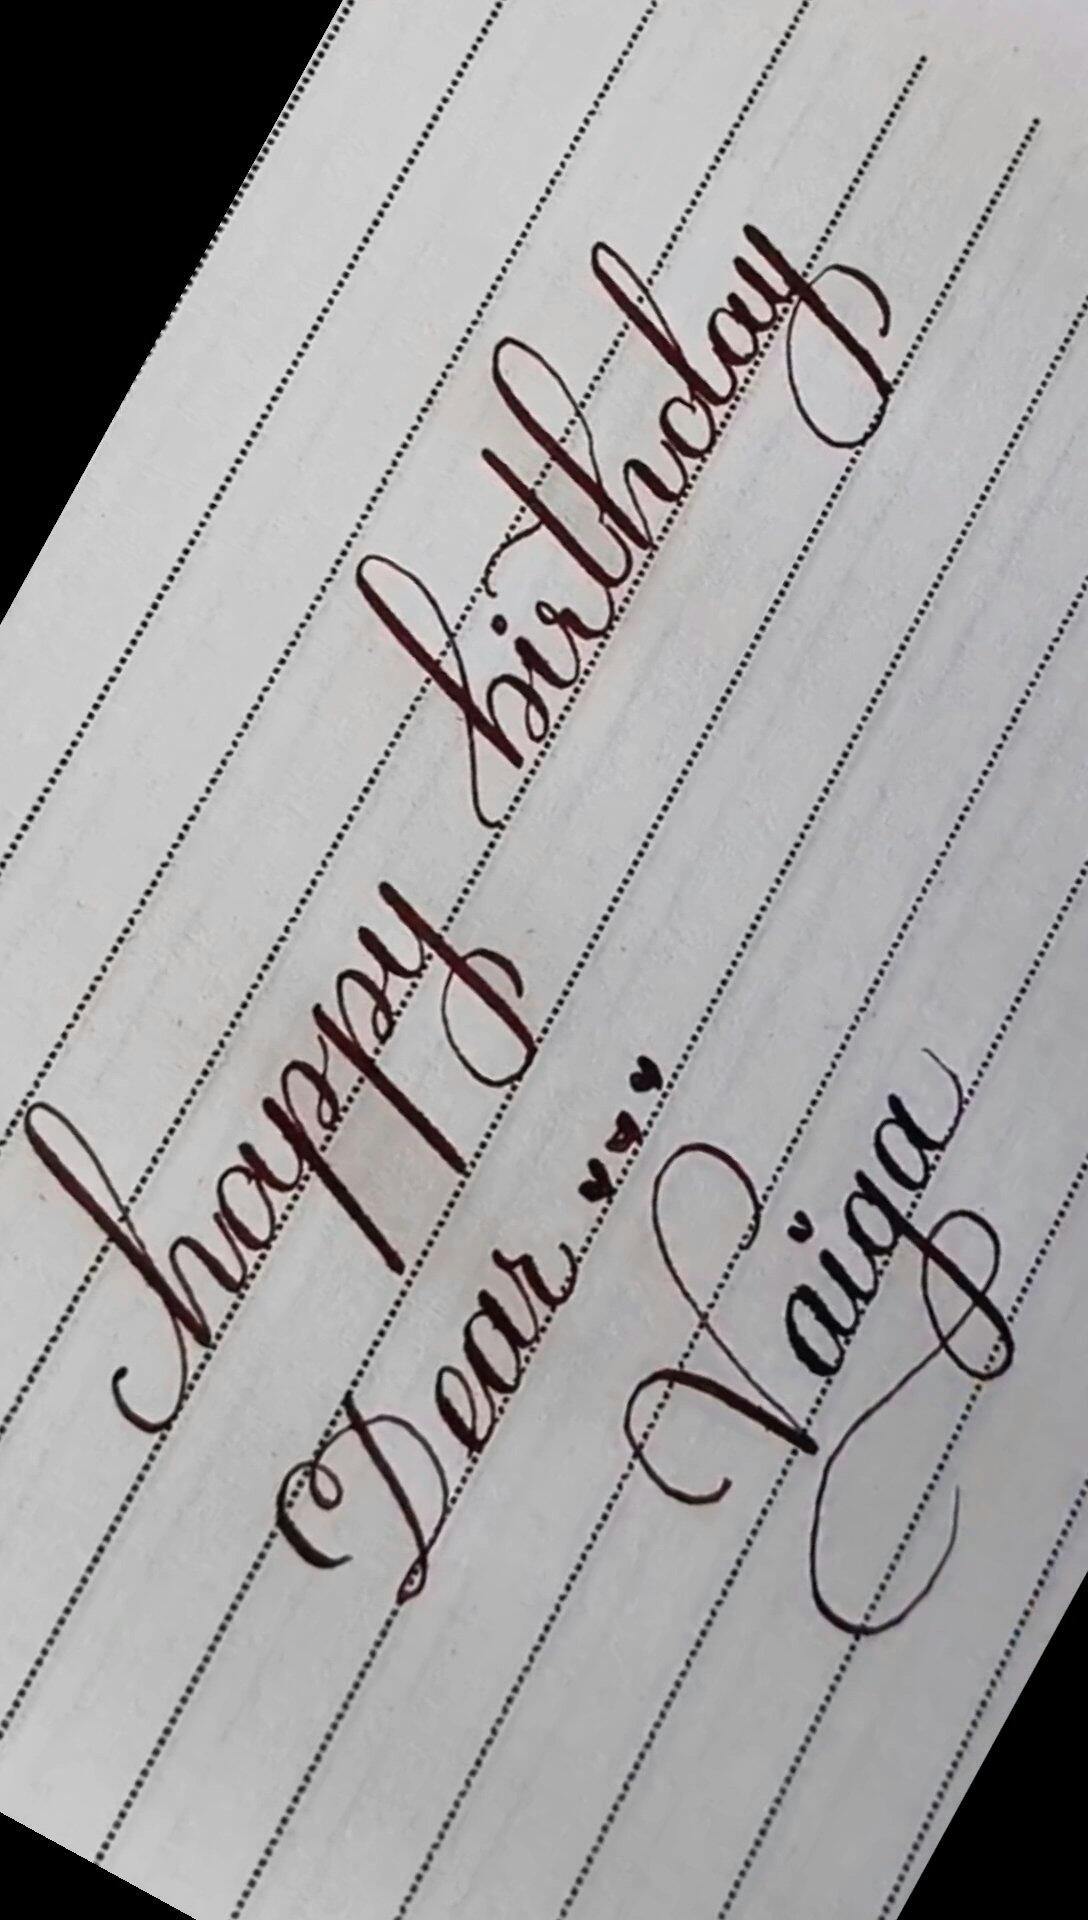 happy birthday
Dear
Vaiga